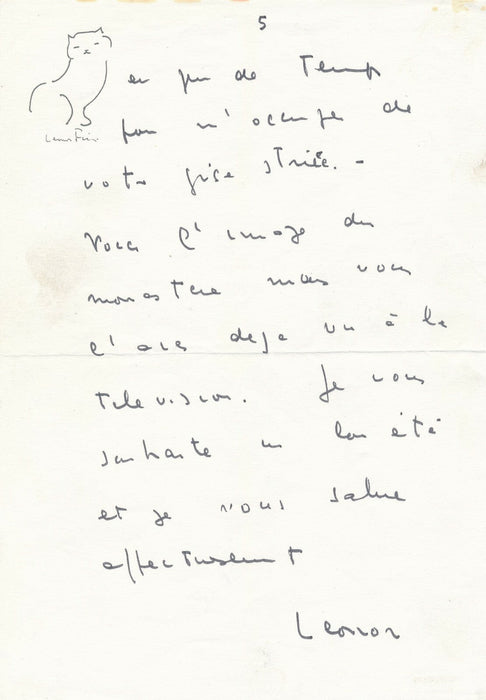 5
Leonor Fini
en peu de Temps
pour m'occuper de
votre grise striée. -
Voici l'image du
monastere mais vous
l'avez deja vu à la
television. Je vous
souhaite un bon été
et je vous salue
affectueusement
Leonor